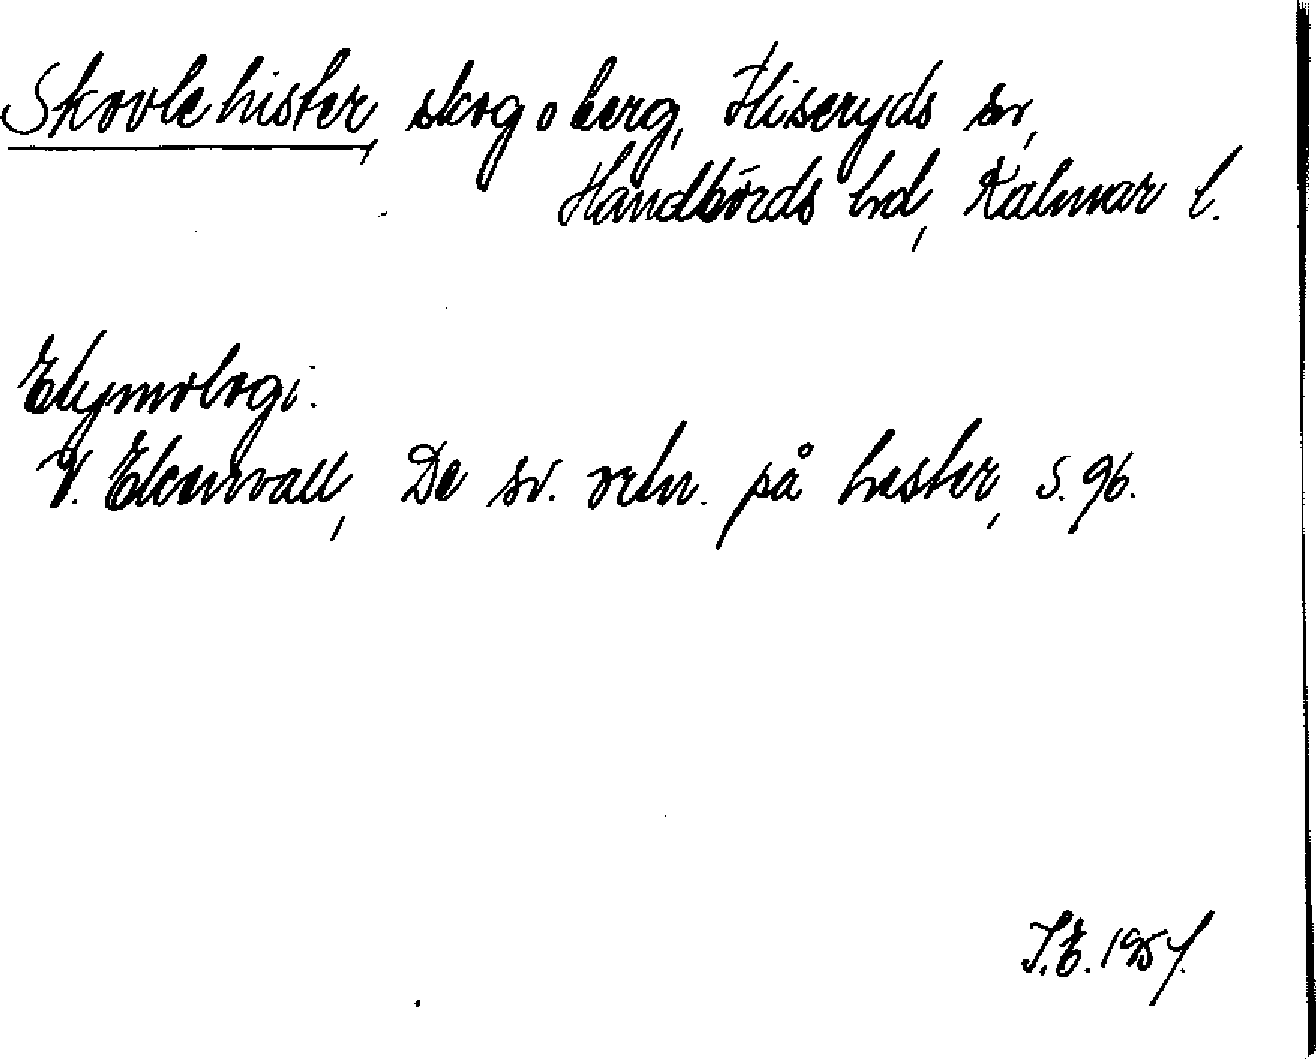 Skovlehister, skog o berg, Fliseryds sn,
Handbörds hd, Kalmar l.
Etymologi:
V. Ekenvall, De sv. ortn. på hester, s. 96.
I.E. 1957.